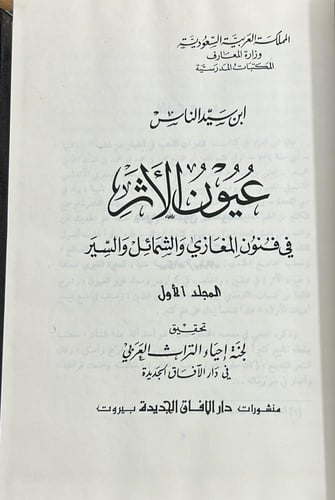 المملكة العربية السعودية
وزارة المعارف
المكتبات المدرسية
ابن سيد الناس
عيون الأثر
في فنون المغازي والشمائل والسير
المجلد الأول
تحقيق
لجنة إحياء التراث العربي
في دار الآفاق الجديدة
منشورات دار الآفاق الجديدة بيروت